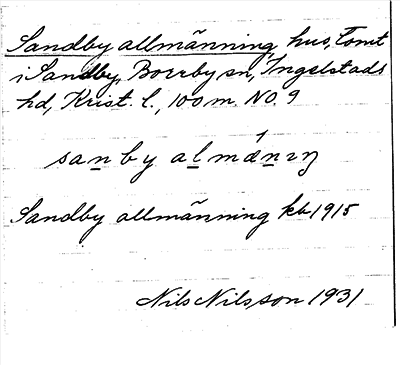 Sandby allmänning, hus, Tomt
i Sandby, Borrby sn, Ingelstads
hd, Krist. l., 100 m. NO. 9
sa̲nby al̲mǽn̲ɪŋ
Sandby allmänning kb 1915
Nils Nilsson 1931